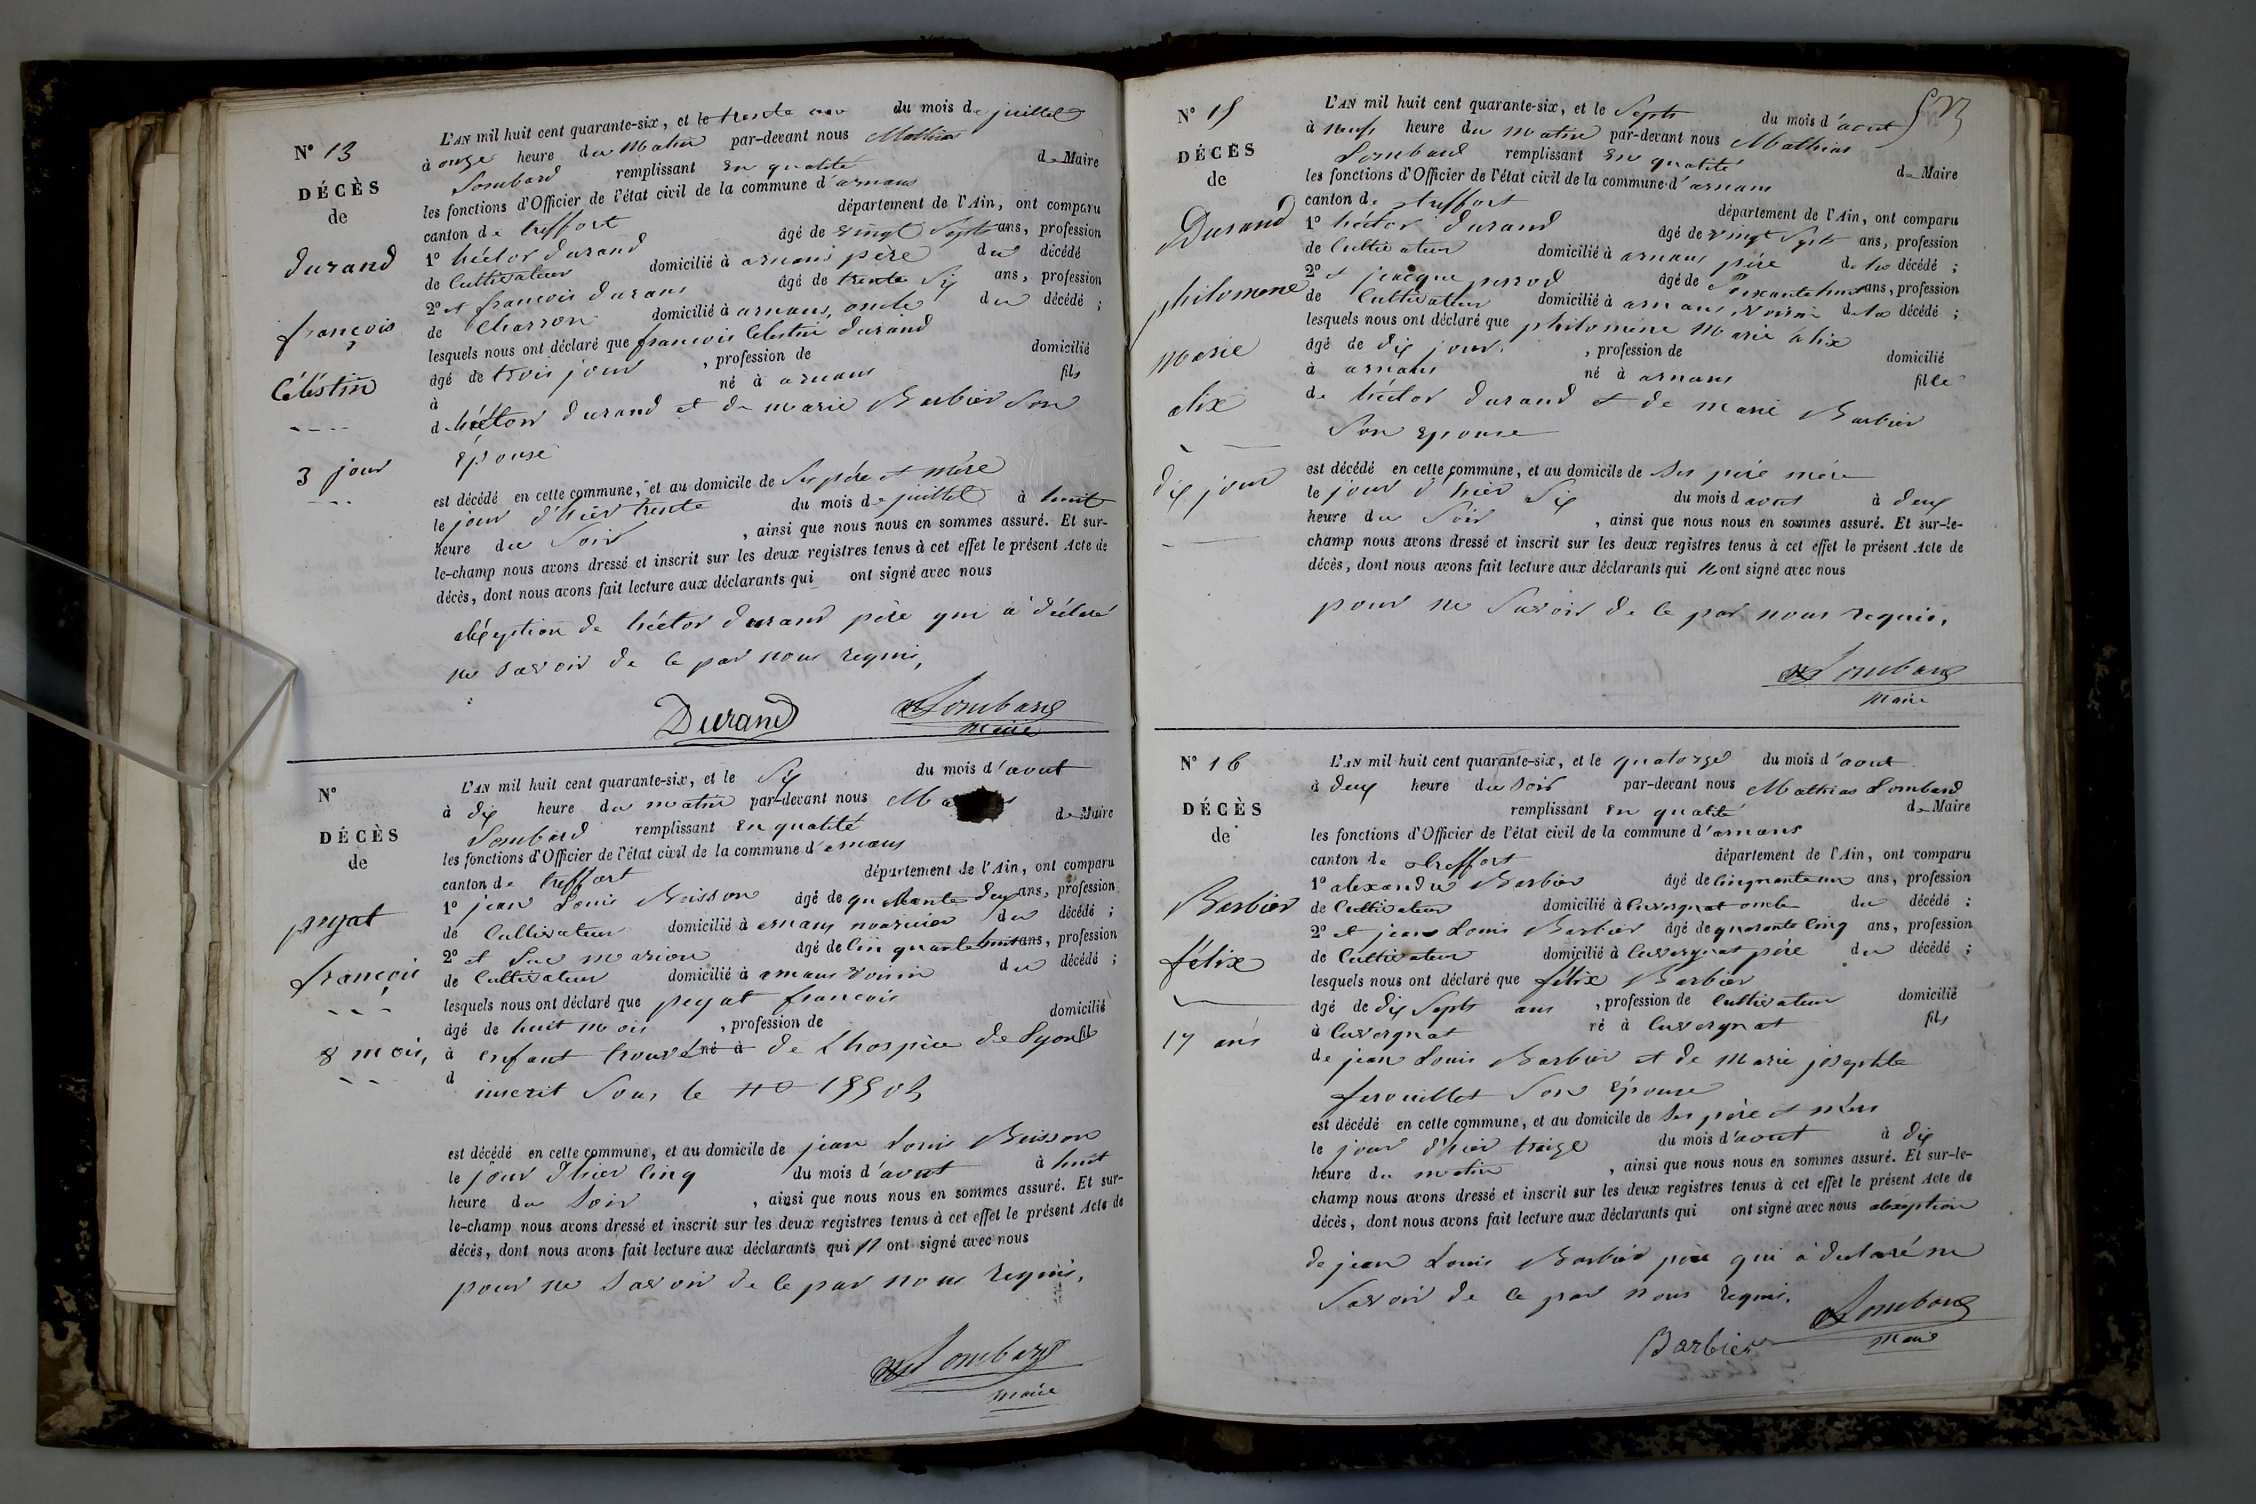 N° 13
DÉCÈS
de
durand
françois
Céléstin
3 jour
L'AN mil huit cent quarante-six, et le trente un du mois de juillet
à onze heure du Matin par-devant nous Mathias
Lombard remplissant En qualité de Maire
les fonctions d'Officier de l'état civil de la commune d'arnans
canton de treffort département de l'Ain, ont comparu
1° héctor durand âgé de vingt Septs ans, profession
de Cultivateur domicilié à arnans père du décédé
2° et françois durand âgé de trente Six ans, profession
de Charron domicilié à arnans, oncle du décédé ;
lesquels nous ont déclaré que françois Celestin durand
âgé de trois jour , profession de domicilié
à né à arnans fils
d héctor durand et de marie Barbier Son
épouse
est décédé en cette commune, et au domicile de Ses père et mère
le jour d'hier trente du mois de juillet à huit
heure du Soir , ainsi que nous nous en sommes assuré. Et sur-
le-champ nous avons dressé et inscrit sur les deux registres tenus à cet effet le présent Acte de
décès, dont nous avons fait lecture aux déclarants qui ont signé avec nous
aléxeption de héctor durand père qui à déclaré
ne savoir de ce par nous requis,
Durand MLombard
Maire
N°
DÉCÈS
de
pegat
françois
8 mois,
L'AN mil huit cent quarante-six, et le Six du mois d'aout
à dix heure du matin par-devant nous
Lombard remplissant En qualité de Maire
les fonctions d'Officier de l'état civil de la commune d'arnans
canton de treffort département de l'Ain, ont comparu
1° jean Louis Buisson âgé de quarante deux ans, profession
de Cultivateur domicilié à arnans du décédé ;
2° et marion âgé de Cinquante huit ans, profession
de Cultivateur domicilié à arnans voisin du décédé ;
lesquels nous ont déclaré que pegat françois
âgé de huit mois , profession de domicilié
à enfant trouvé né à de Lhospice de Lyon fil
d inscrit Sous le N°
est décédé en cette commune, et au domicile de jean Louis Buisson
le jour d'hier Cinq du mois d'aout à huit
heure du Soir , ainsi que nous nous en sommes assuré. Et sur-
le-champ nous avons dressé et inscrit sur les deux registres tenus à cet effet le présent Acte de
décès, dont nous avons fait lecture aux déclarants qui n ont signé avec nous
pour ne Savoir de ce par nous requis,
MLombard
maire
N° 15
DÉCÈS
de
Durand
philomene
marie
alix
dix jour
L'AN mil huit cent quarante-six, et le Septs du mois d'aout
à neufs heure du matin par-devant nous Mathias
Lombard remplissant En qualité de Maire
les fonctions d'Officier de l'état civil de la commune d'arnans
canton de treffort département de l'Ain, ont comparu
1° héctor durand âgé de vingt Septs ans, profession
de Cultivateur domicilié à arnans père de la décédé ;
2° et jacque perrod âgé de Soixante huit ans, profession
de Cultivateur domicilié à arnans voisin de la décédé ;
lesquels nous ont déclaré que philoméne Marie alix
âgé de dix jour , profession de domicilié
à arnans né à arnans fille
de héctor durand et de marie Barbier
Son epouse
est décédé en cette commune, et au domicile de Ses père mére
le jour d'hier Six du mois d aout à deux
heure du Soir , ainsi que nous nous en sommes assuré. Et sur-le-
champ nous avons dressé et inscrit sur les deux registres tenus à cet effet le présent Acte de
décès, dont nous avons fait lecture aux déclarants qui n ont signé avec nous
pour ne Savoir de ce par nous requis,
MLombard
Maire
N° 16
DÉCÈS
de
Barbier
félix
17 ans
L'AN mil huit cent quarante-six, et le quatorze du mois d'aout
à deux heure du soir par-devant nous Mathias Lombard
remplissant En qualité de Maire
les fonctions d'Officier de l'état civil de la commune d'arnans
canton de treffort département de l'Ain, ont comparu
1° alexandre Barbier âgé de Cinquante un ans, profession
de Cultivateur domicilié à Cuvergnat oncle du décédé ;
2° et jean Louis Barbier âgé de quarante Cinq ans, profession
de Cultivateur domicilié à Cuvergnat père du décédé ;
lesquels nous ont déclaré que félix Barbier
âgé de dix Septs ans , profession de Cultivateur domicilié
à Cuvergnat né à Cuvergnat fils
de jean Louis Barbier et de Marie josephte
ferouillet Son Épouse
est décédé en cette commune, et au domicile de Ses père et mère
le jour d'hier traize du mois d'aout à dix
heure du matin , ainsi que nous nous en sommes assuré. Et sur-le-
champ nous avons dressé et inscrit sur les deux registres tenus à cet effet le présent Acte de
décès, dont nous avons fait lecture aux déclarants qui ont signé avec nous aléxéption
de jean Louis Barbier père qui à declaré ne
Savoir de ce par nous requis.
Barbier MLombard
Maire